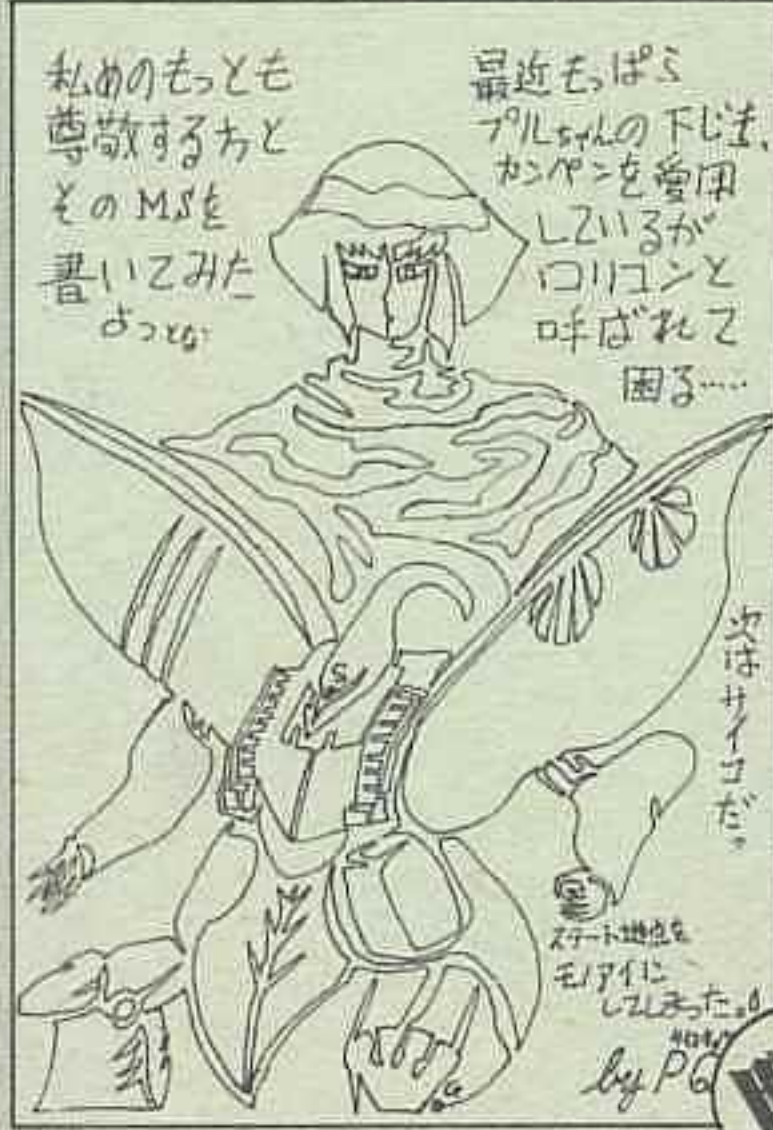 私めのもっとも
尊敬する方と
そのMSを
書いてみた
よっとな
最近もっぱら
プルちゃんの下じき、
カンペンを愛用
しているが
ロリコンと
呼ばれて
困る……
次はサイコだっ
S
スタート地点を
モノアイに
してしまった。
by PG
G